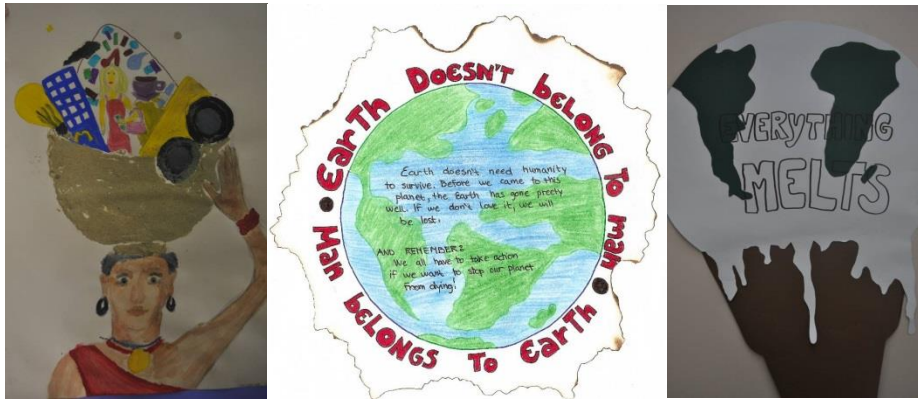 EarTH DOESN'T bELONG To maN
maN bELONGS To EarTH
Earth doesn't need humanity
to survive. Before we came to this
planet, the Earth has gone pretty
well. If we don't love it, we will
be lost.
AND REMEMBER:
We all have to take action
if we want to stop our planet
from dying!
EVERYTHING
MELTS